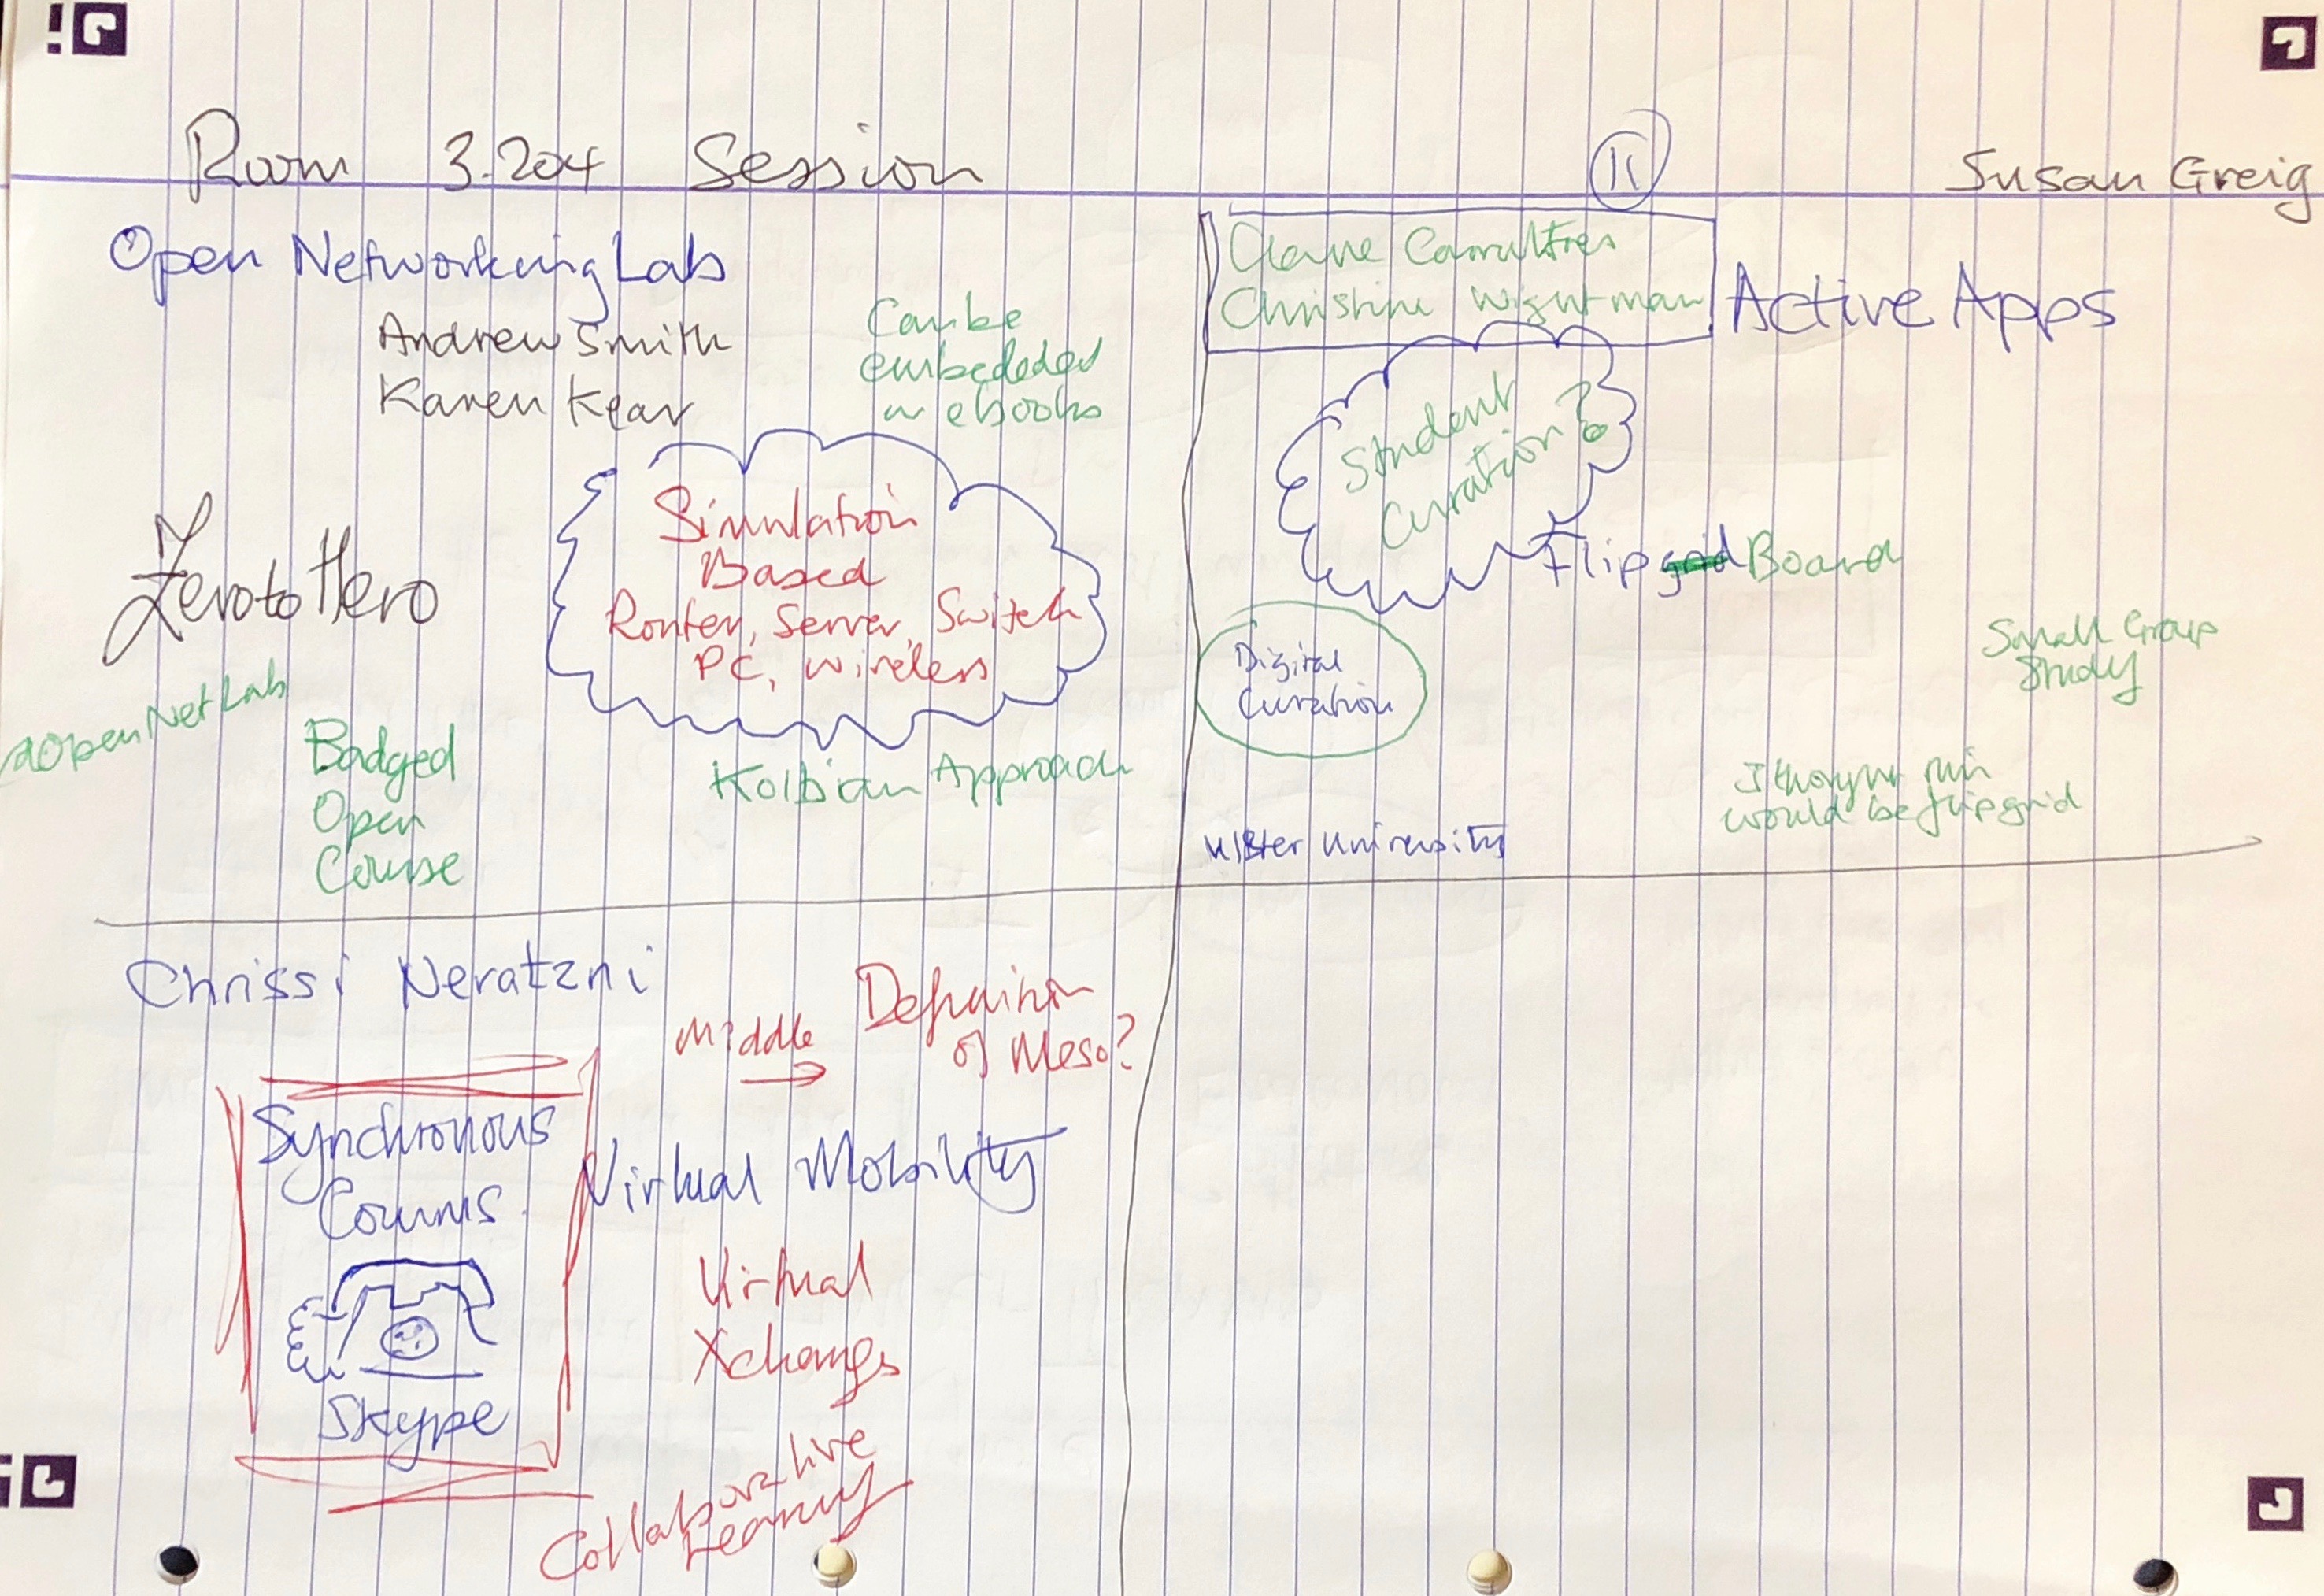 Room 3.204 Session
Susan Greig
Open Networking Lab
Andrew Smith
Karen Kear
Can be
embededed
in ebooks
Zero to Hero
Simulation
Based
Router, Server, Switch
PC, wireless
OpenNetLab
Badged
Open
Course
Kolbian Approach
Christine Wightman
Active Apps
Student
Curation?
Flipgrid Board
Digital
Curation
Small Group
Study
would be flipgrid
Ulster University
Chrissi Neratzni
Middle
Definition
of Meso?
Synchronous
Comms
Skype
Virtual Mobility
Virtual
Xchangs
Collaborative
Learning